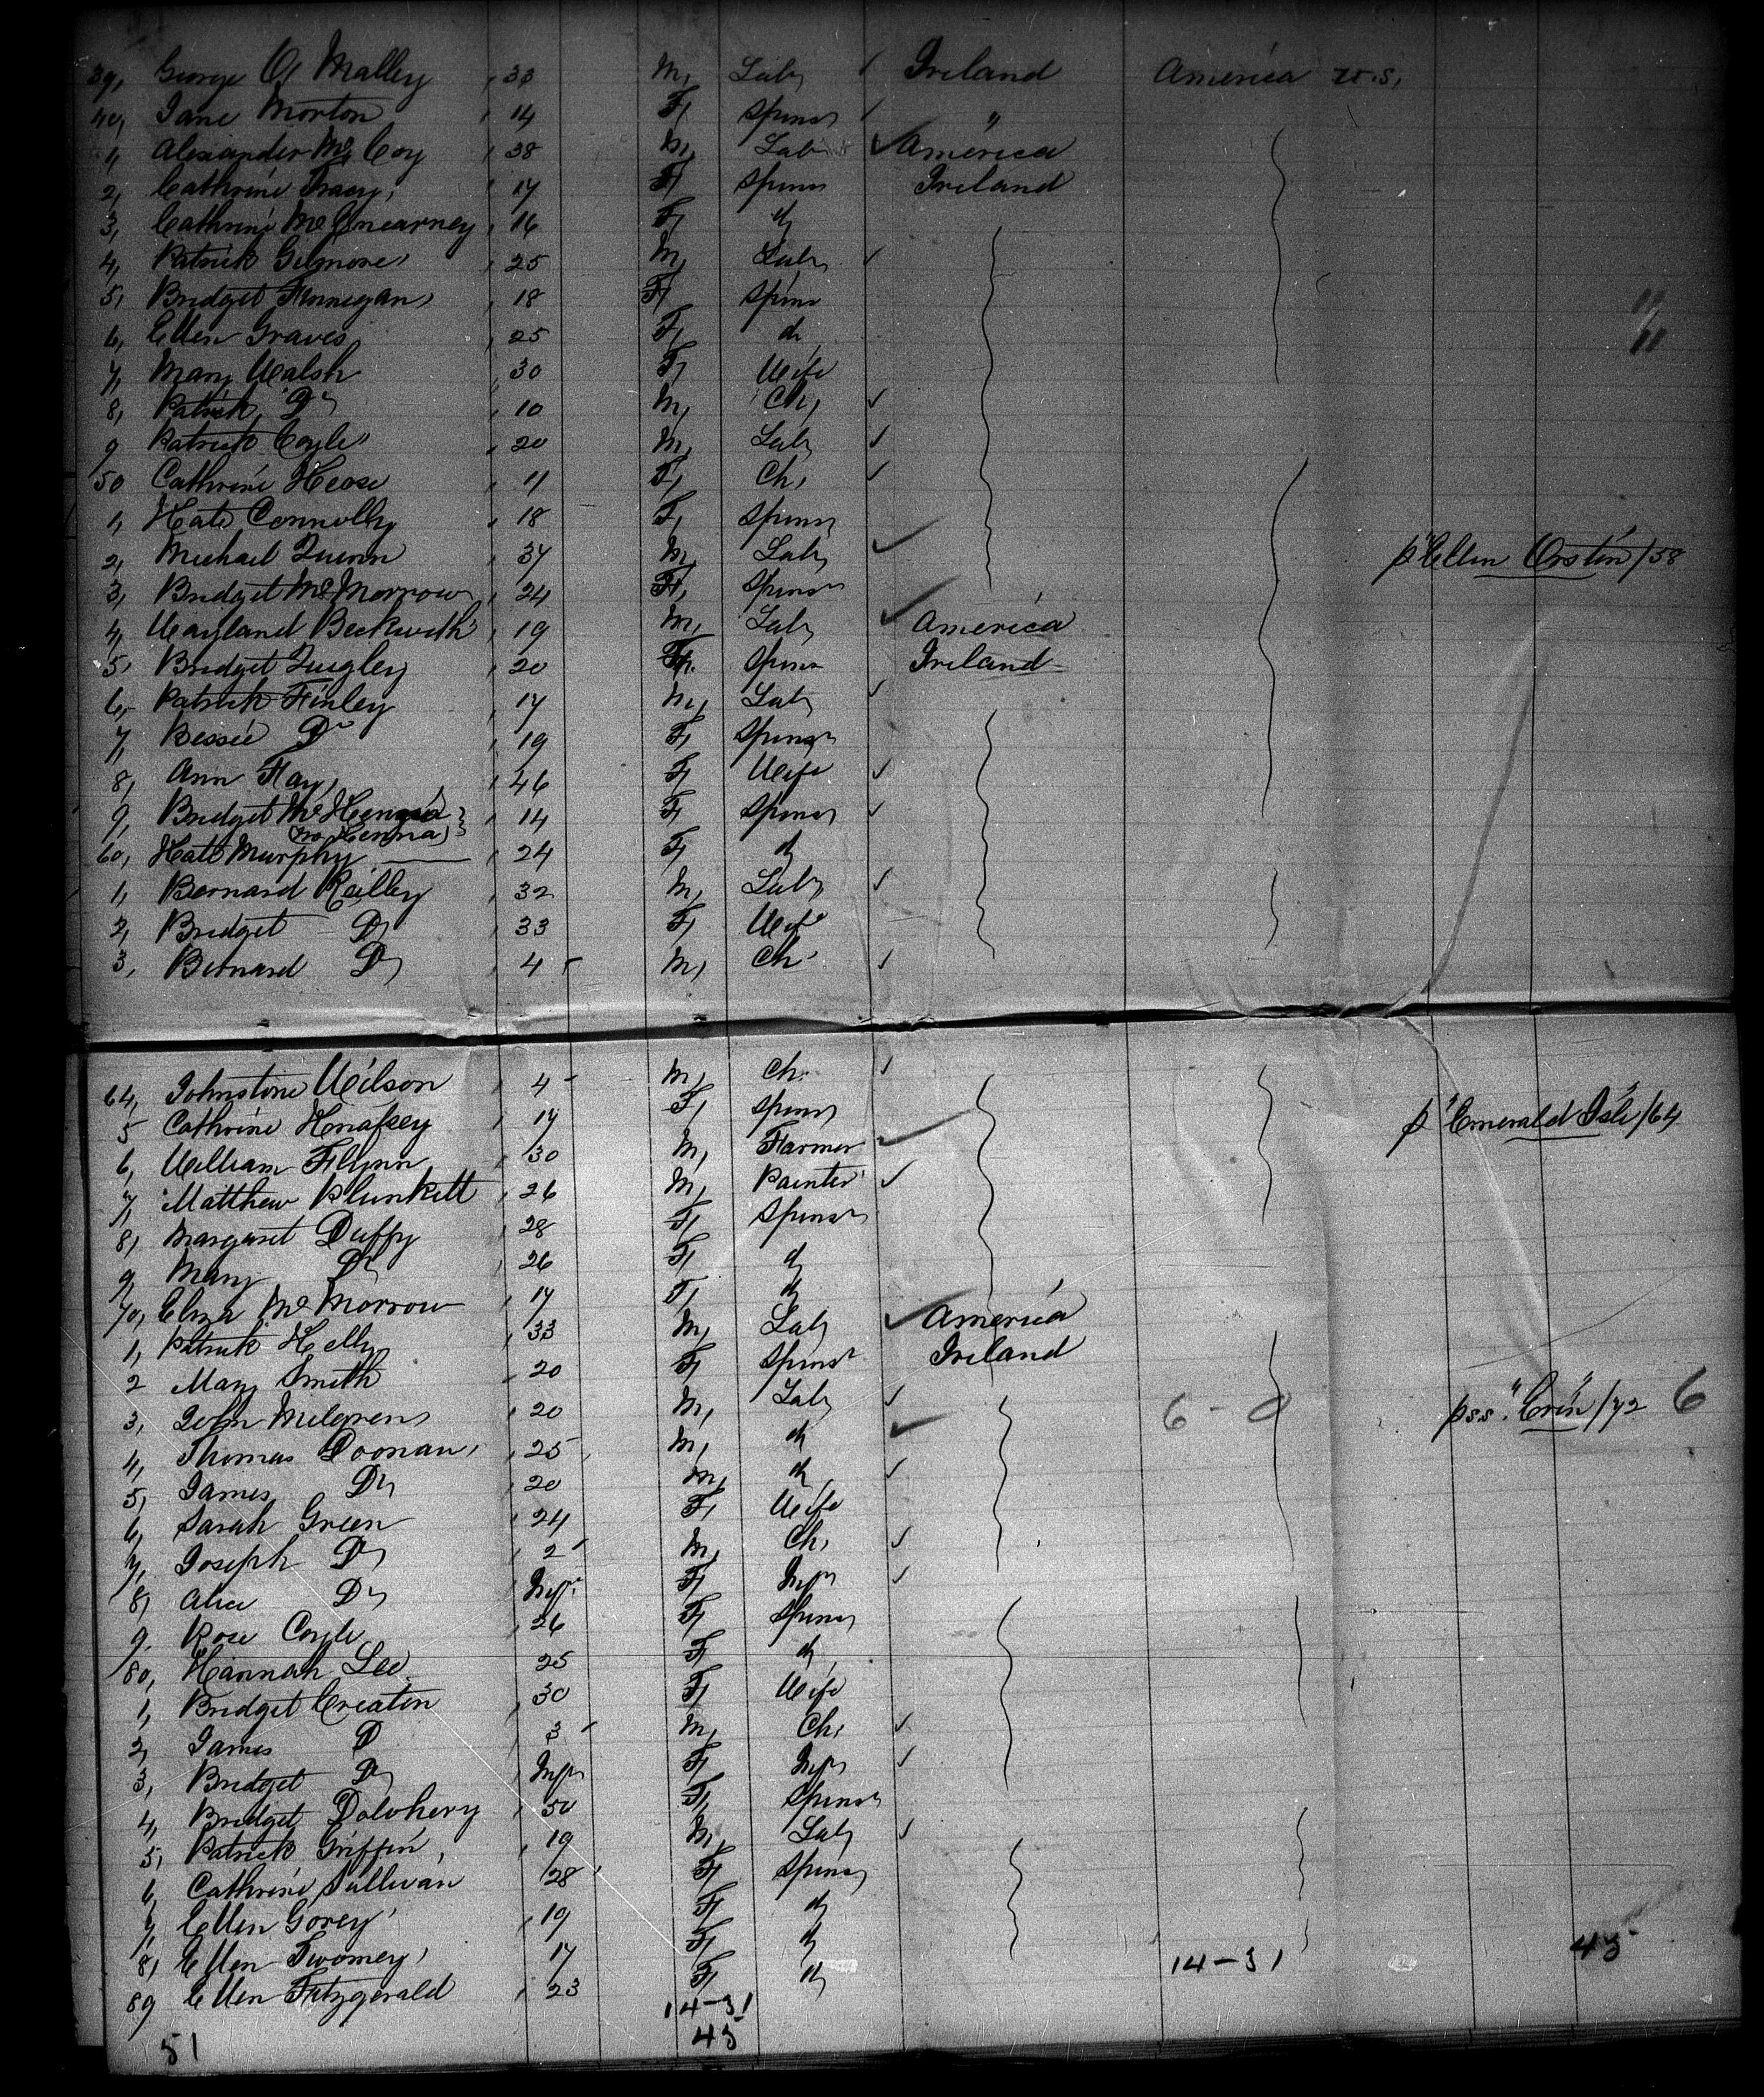 39, George O'Malley 33 M, Lab, Ireland America U.S.
40, Jane Morton 14 F, Spins "
1, Alexander McCoy 38 M, Lab America
2, Cathrine Tracy, 17 F, Spins Ireland
3, Cathrine 16 F, do
4, Patrick Gilmore, 25 M, Lab
5, Bridget Finnegan, 18 F, Spins
6, Ellen Graves, 25 F, do
7, Mary Walsh 30 F, Wife
8, Patrick Do 10 M, Ch,
9 Patrick Coyle 20 M, Lab,
50 Cathrine 11 F, Ch,
1, Kate Connolly 18 F, Spins
2, Michael Quinn 37 M, Lab, p "Ellen /58
3, Bridget McMorrow 24 F, Spins
4, Wayland Beckwith 19 M, Lab, America
5, Bridget Quigley 20 F, Spins Ireland
6, Patrick Finley 17 M, Lab,
7, Bessie Do 19 F, Spins
8, Ann Fay, 46 F, Wife
9, Bridget 14 F, Spins
(McKenna)
60, Kate Murphy 24 F, do
1, Bernard Reilley 32 M, Lab,
2, Bridget Do 33 F, Wife
3, Bernard Do 4 M, Ch,
64, Johnstone Wilson 4 M, Ch.
5 Cathrine 17 F, Spins p "Emerald Isle"/64
6, William Flynn 30 M, Farmer
7, Matthew Plunkett 26 M, Painter
8, Margaret Duffy 28 F, Spins
9, Mary Do 26 F, do
70, Eliza McMorrow 17 F, do
1, Patrick Kelly 33 M, Lab, America
2 Mary Smith 20 F, Spins Ireland
3, John 20 M, Lab, 6 - 0 p s.s. "Erin"/72 6
4, Thomas Doonan, 25 M, do
5, James Do 20 M, do
6, Sarah Green 24 F, Wife
7, Joseph Do 2 M, Ch,
8, Alice Do Inft F, Inft
9, Rose Coyle 26 F, Spins
80, Hannah Lee 25 F, do
1, Bridget Creaton 30 F, Wife
2, James D 3 M, Ch,
3, Bridget Do Inft F, Inft
4, Bridget Dolohery 50 F, Spins
5, Patrick Griffin, 19 M, Lab,
6, Cathrine Sullivan 28 F, Spins
7, Ellen Gorey 19 F, do
8, Ellen Twomey, 17 F, do 14-31 45
89 Ellen Fitzgerald 23 F, do
14-31
51 45